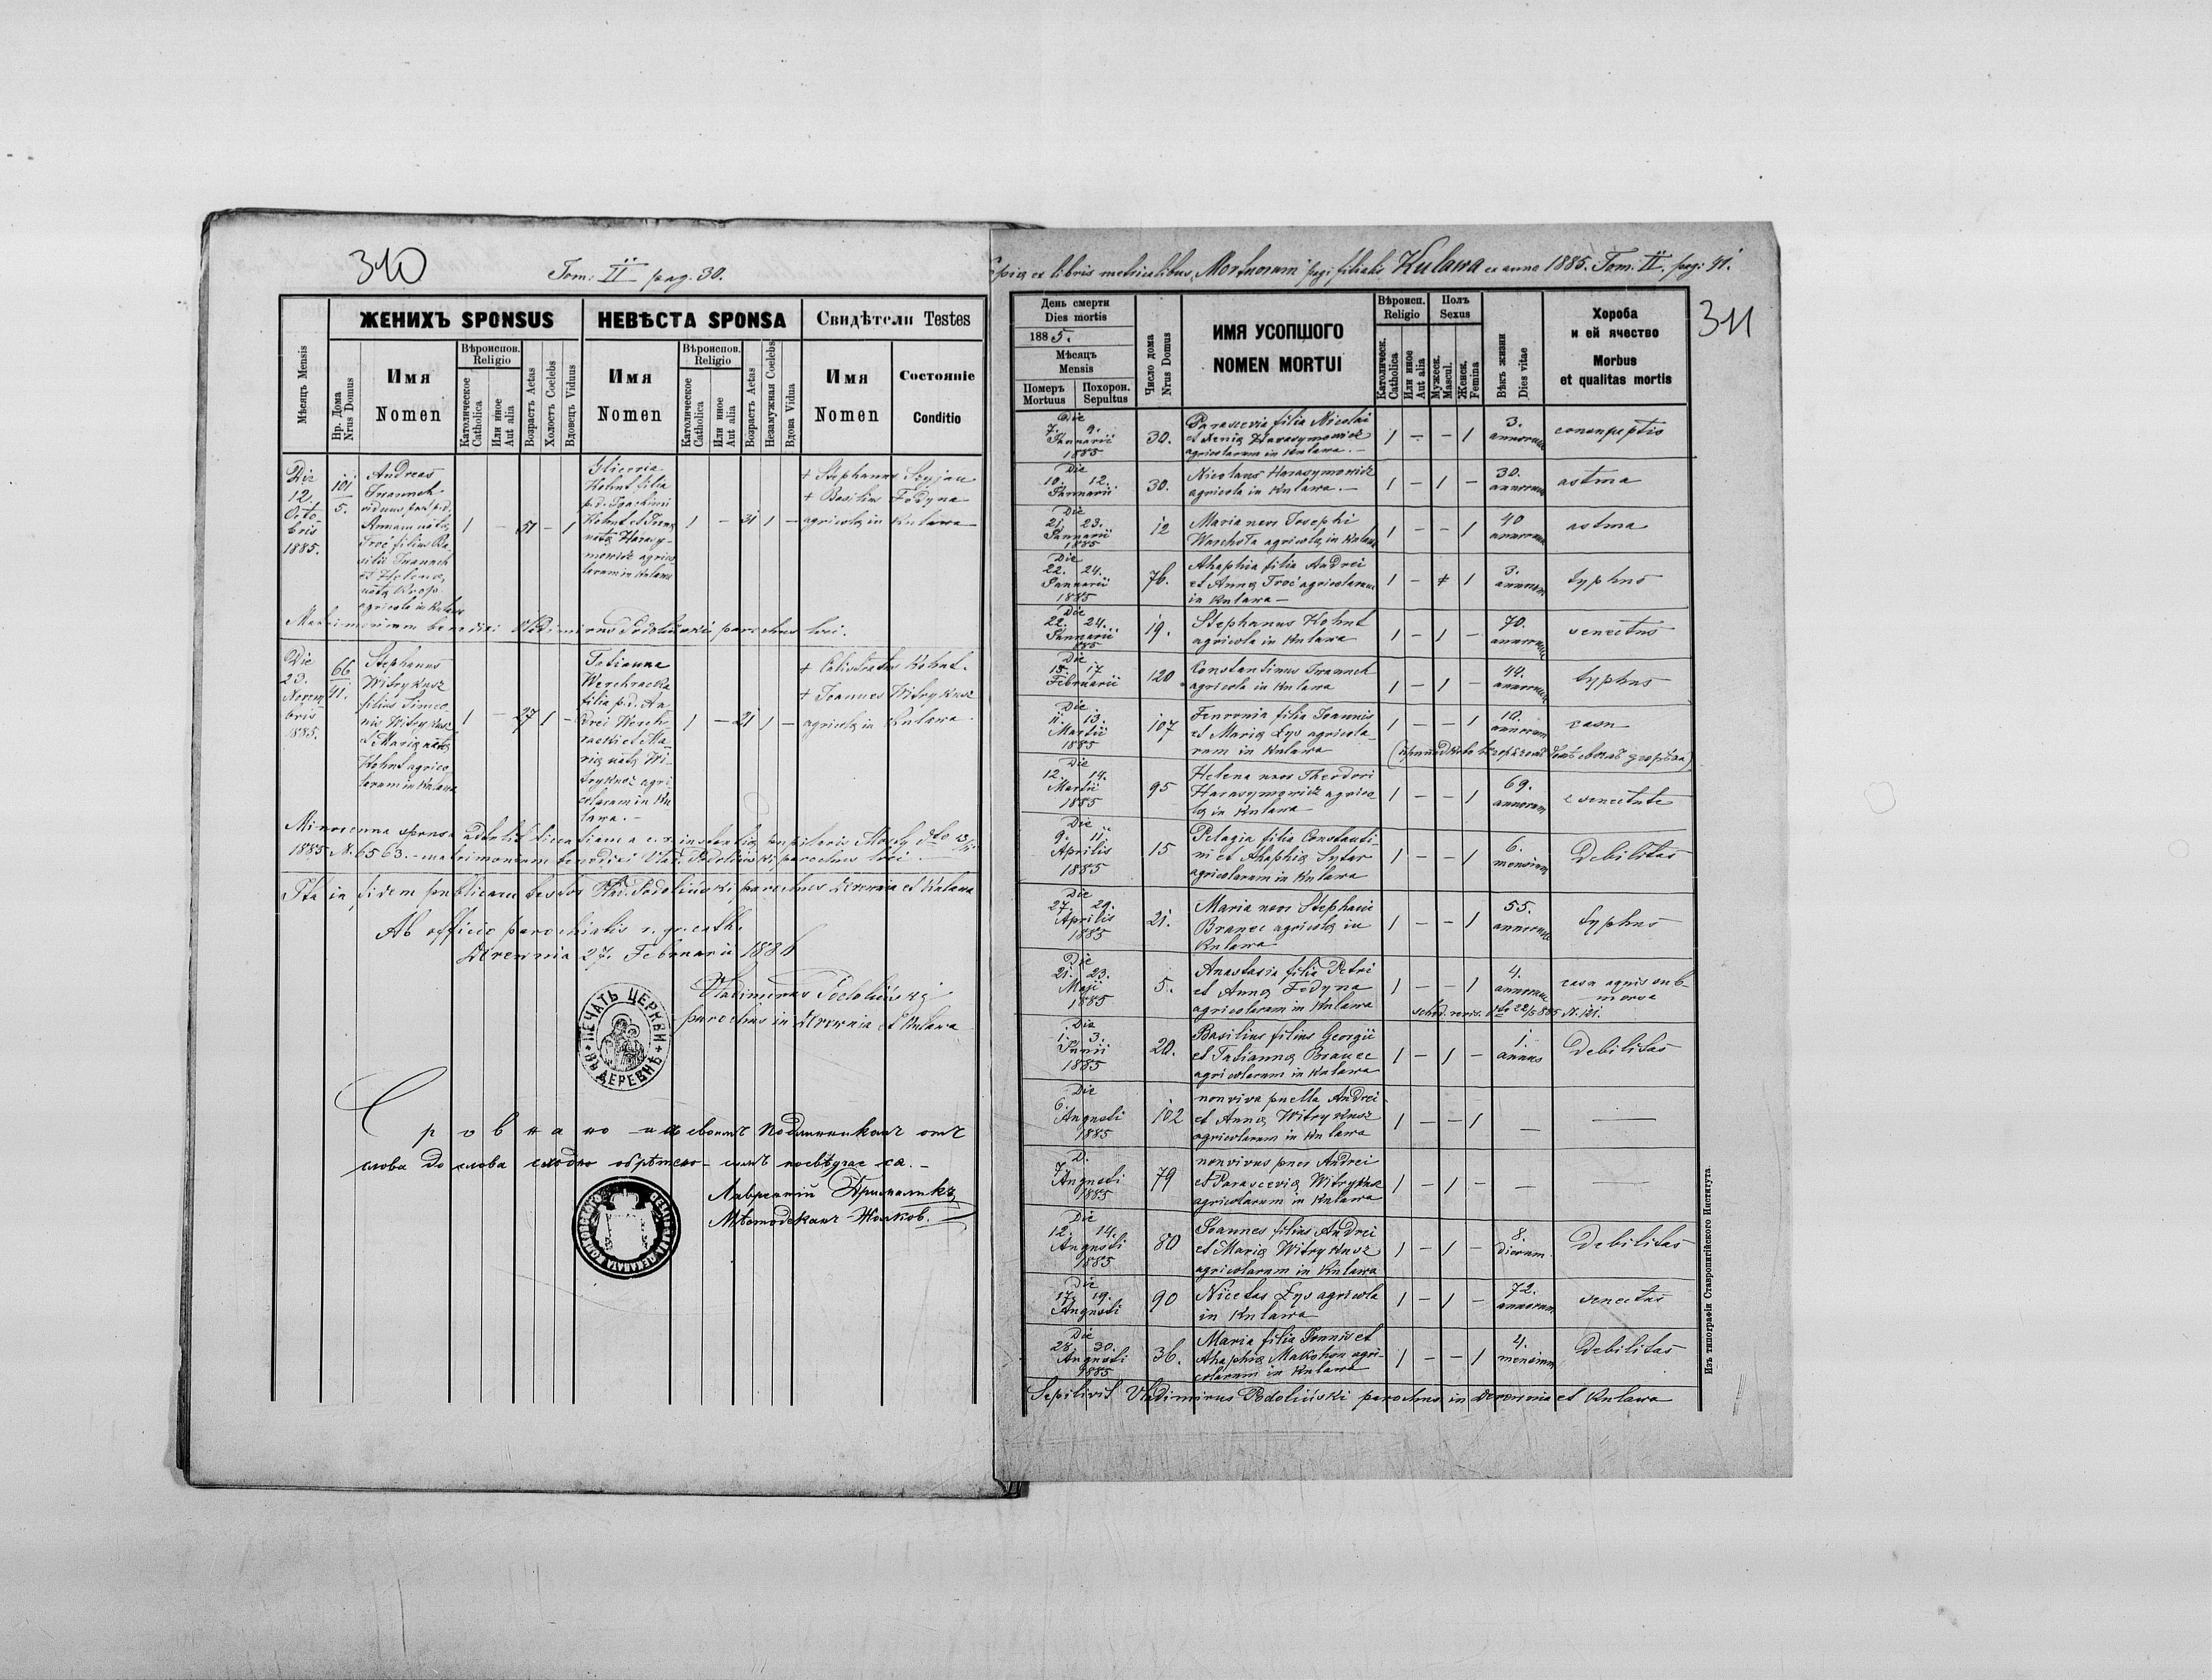 310
Tom. II pag. 30.
Мѣсяцъ Mensis
Нр. Дома Nrus Domus
ЖЕНИХЪ SPONSUS
Имя
Nomen
Вѣроиспов. Religio
Католическое Catholica
Или иное Aut alia
Возрастъ Aetas
Холостъ Coelebs
Вдовецъ Viduus
НЕВѢСТА SPONSA
Имя
Nomen
Вѣроиспов. Religio
Католическое Catholica
Или иное Aut alia
Возрастъ Aetas
Незамужная Coelebs
Вдова Vidua
Свидѣтели Testes
Имя
Nomen
Состояніе
Conditio
Die
12.
Octo
bris
1885.
101
5.
Andreas
Iwanuch
viduus post p.d.
Annam natą
Troć filius Ba
silii Iwanuch
et Helenę
natę Krop
agricola in Kulawa
1 – 51 – 1
Kohut filia
p.d. Joachimi
Kohut et Irenę
natę Harasy-
mowicz agrico
larum in Kulawa
1 – 31 1 –
+ Stephanus Szyjan
+ Basilius Fedyna
agricolę in Kulawa
Matrimonium benedixi Vladimirus Podoliński parochus loci.
Die
23.
Novem
bris
1885.
66
41.
Stephanus
Witrykusz
filius Simeo-
nis Witrykusz
et Marię natę
Kohut agrico
larum in Kulawa
1 – 27 1 –
Tatianna
Werchracka
filia p.d. An
drei Werch-
racki et Ma-
rię natę Wi-
trykusz agri-
colarum in Ku
lawa. –
1 – 21 1 –
+ Kohut.
+ Joannes Witrykusz
agricolę in Kulawa
Minorenna sponsa attulit licentiam a c.r. instantią pupilaris Mosty dto
1885 N. 6563. – matrimonium benedixi Vlad. Podoliński parochus loci –
Ita in fidem publicam testor Vlad. Podoliński parochus Derewnia et Kulawa
Ab officio parochialis r. gr. cath.
Derewnia 27. Februarii 1886
Vladimirus Podoliński
parochus in Derewnia et Kulawa
ПЕЧАТЬ ЦЕРКВИ ВЪ ДЕРЕВНѢ
Сровнано и съ своимъ подлинникомъ отъ
слова до слова сходно обрѣтено – симъ посвѣдчаеся. –
Лаврентій
Мѣстодеканъ Жолков.
Copia ex libris metricalibus Mortuorum pagi filialis Kulawa ex anno 1885. Tom. II. pag: 41.
311
День смерти
Dies mortis
1885.
Мѣсяцъ
Mensis
Померъ Mortuus
Похорон. Sepultus
Число дома Nrus Domus
ИМЯ УСОПШОГО
NOMEN MORTUI
Вѣроисп. Religio
Католическ. Catholica
Или иное Aut alia
Полъ Sexus
Мужеск. Mascul.
Женск. Femina
Вѣкъ жизни Dies vitae
Хороба
и ей ячество
Morbus
et qualitas mortis
Die
7. 9.
Januarii
1885
30.
Parascevia filia Nicolai
et Xenię Harasymowicz
agricolarum in Kulawa. –
1 – – 1
3.
annorum
consumptio
Die
10. 12.
Januarii
30.
Nicolaus Harasymowicz
agricola in Kulawa. –
1 – 1 –
30.
annorum
astma
Die
21. 23.
Januarii
1885
12
Maria uxor Josephi
Warchoła agricolę in Kulawa
1 – – 1
40
annorum
astma
Die
22. 24.
Januarii
1885
76.
Ahaphia filia Andrei
et Annę Troć agricolarum
in Kulawa –
1 – 1
3.
annorum
typhus
Die
22. 24.
Januarii
1885
19.
Stephanus Kohut
agricola in Kulawa
1 – 1 –
70.
annorum
senectus
Die
15. 17
Februarii
120
Constantinus Iwanuch
agricola in Kulawa
1 – 1 –
44.
annorum
typhus
Die
11. 13.
Martii
1885
107
Fenronia filia Joannis
et Marię Łys agricola-
rum in Kulawa
1 – – 1
10.
annorum
casu
Die
12. 14.
Martii
1885
95
Helena uxor Theodori
Harasymowicz agrico
lę in Kulawa
1 – – 1
69.
annorum
e senectute
Die
9. 11.
Aprilis
1885
15
Pelagia filia Constanti-
ni et Ahaphię Sytar
agricolarum in Kulawa
1 – – 1
6.
mensium
Debilitas
Die
27. 29.
Aprilis
1885
21.
Maria uxor Stephani
Branec agricolę in
Kulawa
1 – – 1
55.
annorum
typhus
Die
21. 23.
Maji
1885
5.
Anastasia filia Petri
et Annę Fedyna
agricolarum in Kulawa
1 – – 1
4.
annorum
casu aquis sub-
mersa
sched. revis. dto 22/5 885 N. 101.
Die
1. 3.
Junii
1885
20.
Basilius filius Georgii
et Tatiannę Branec
agricolarum in Kulawa
1 – 1 –
1.
annus
Debilitas
Die
6.
Augusti
1885
102
non viva puella Andrei
et Annę Witrykusz
agricolarum in Kulawa
1 – – 1
–
–
D.
7.
Augusti
1885
79
non vivus puer Andrei
et Parascevię Witrykusz
agricolarum in Kulawa
1 – 1 –
–
–
Die
12. 14.
Augusti
1885
80
Joannes filius Andrei
et Marię Witrykusz
agricolarum in Kulawa
1 – 1 –
8.
dierum
Debilitas
Die
17. 19.
Augusti
90
Nicetas Łys agricola
in Kulawa
1 – 1 –
72.
annorum
senectus
Die
28. 30.
Augusti
1885
36.
Maria filia et
Ahaphię Makohon agri-
colarum in Kulawa
1 – – 1
4.
mensium
Debilitas
Sepelivit Vladimirus Podoliński parochus in Derewnia et Kulawa
Изъ типографіи Ставропигійского Института.